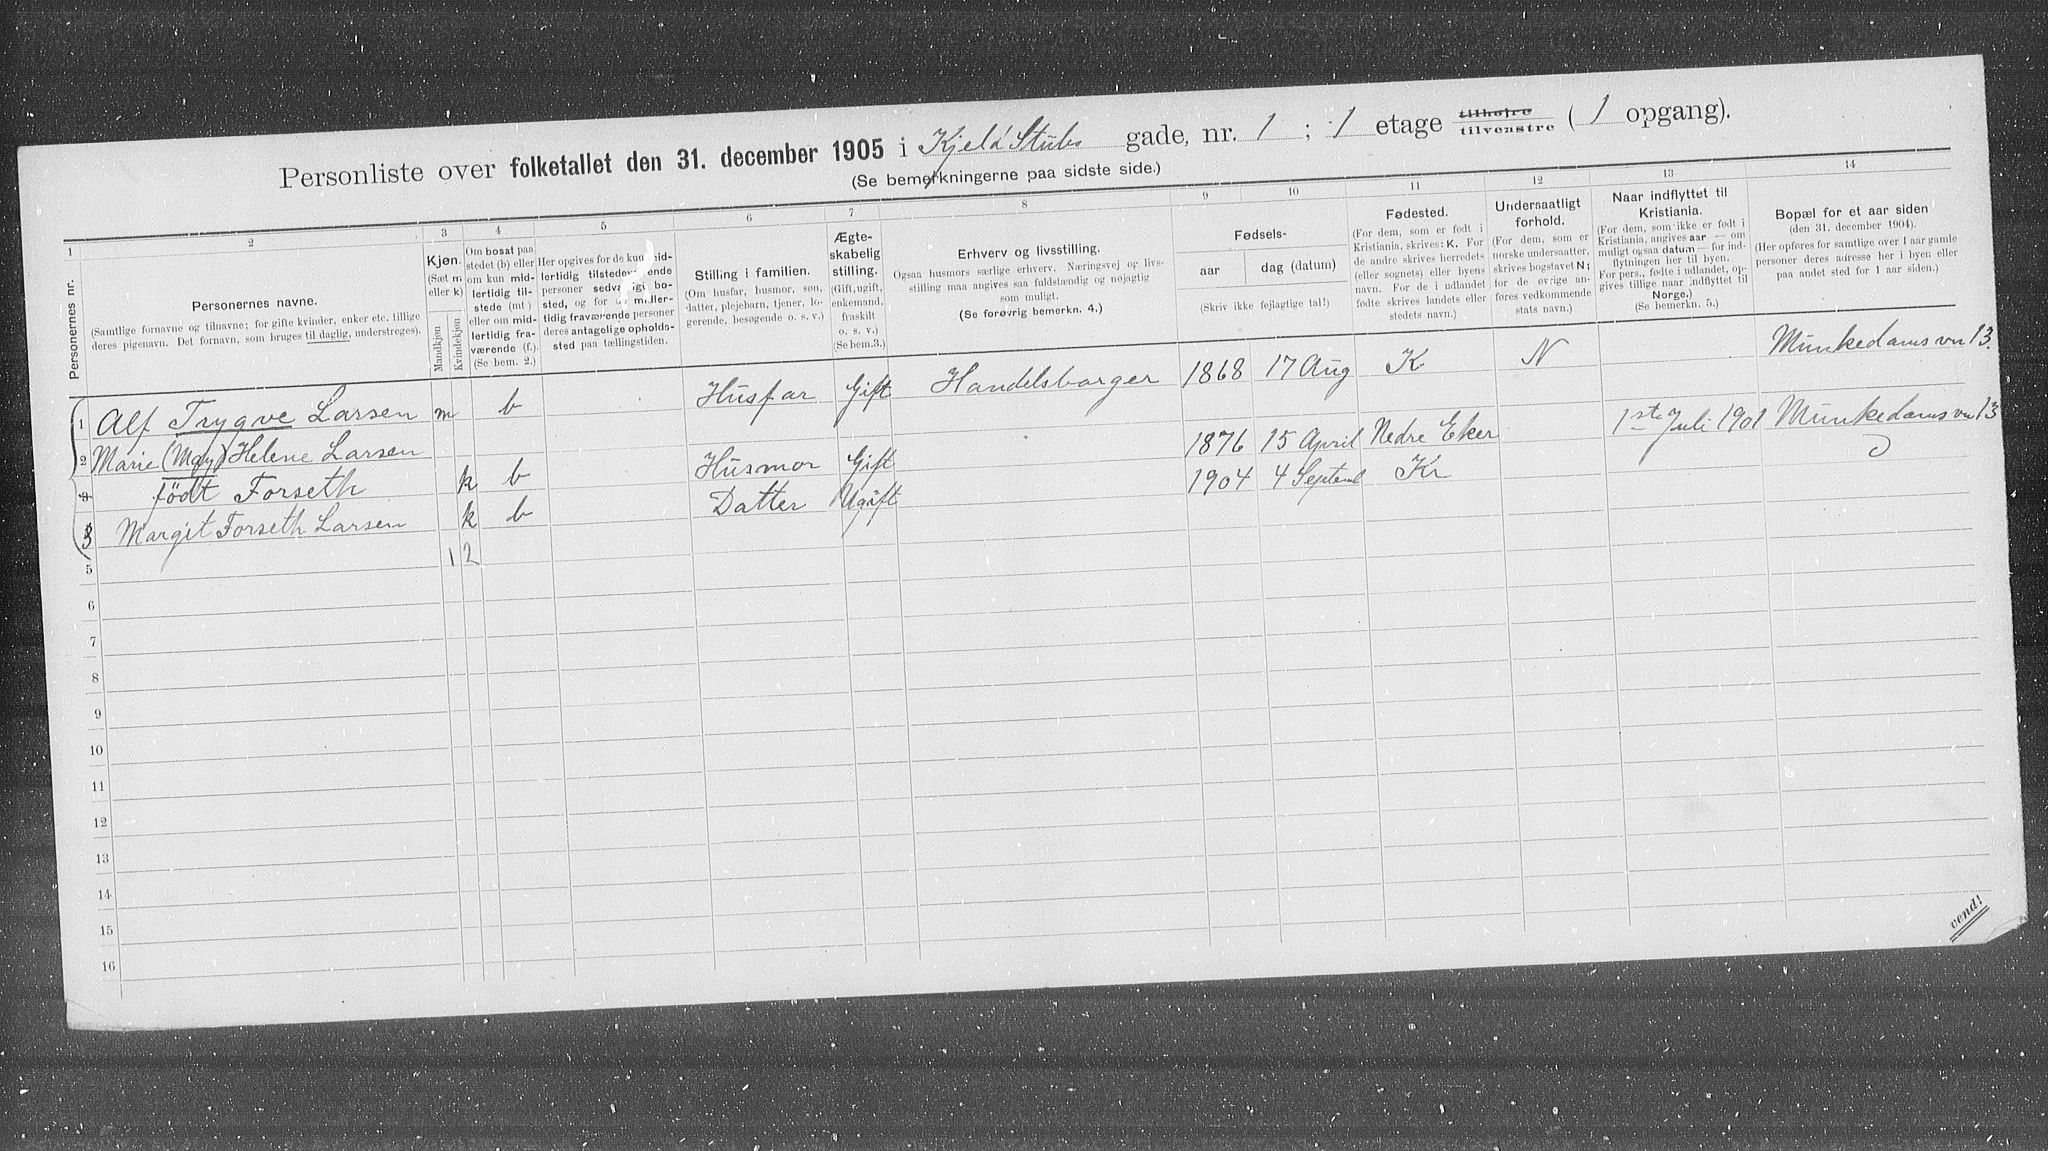 Personliste over folketallet den 31. december 1905 i Kjeld Stubs gade, nr. 1 ; 1 etage tilhøjre tilvenstre ( 1 opgang).
(Se bemerkningerne paa sidste side.)
1 2 3 4 5 6 7 8 9 10 11 12 13 14
Personernes nr.
Personernes navne.
(Samtlige fornavne og tilnavne; for gifte kvinder, enker etc. tillige
deres pigenavn. Det fornavn, som bruges til daglig, understreges).
Kjøn.
(Sæt m
eller k)
Mandkjøn
Kvindekjøn
Om bosat paa
stedet (b) eller
om kun mid-
lertidig til-
stede (mt)
eller om mid-
lertidig fra-
værende (f.).
(Se bem. 2.)
Her opgives for de kun mid-
lertidig tilstedeværende
personer sedvanligt bo-
sted, og for de midler-
tidig fraværende personer
deres antagelige opholds-
sted paa tællingstiden.
Stilling i familien.
(Om husfar, husmor, søn,
datter, plejebarn, tjener, lo-
gerende, besøgende o. s. v.)
Ægte-
skabelig
stilling.
(Gift, ugift,
enkemand,
fraskilt
o. s. v.)
(Se bem.3.)
Erhverv og livsstilling.
Ogsaa husmors særlige erhverv. Næringsvej og livs-
stilling maa angives saa fuldstændig og nøjagtig
som muligt.
(Se forøvrig bemerkn. 4.)
Fødsels-
aar
dag (datum)
(Skriv ikke fejlagtige tal!)
Fødested.
(For dem, som er født i
Kristiania, skrives: K. For
de andre skrives herredets
(eller sognets) eller byens
navn. For de i udlandet
fødte skrives landets eller
stedets navn.)
Undersaatligt
forhold.
(For dem, som er
norske undersaatter,
skrives bogstavet N;
for de øvrige an-
føres vedkommende
stats navn.)
Naar indflyttet til
Kristiania.
(For dem, som ikke er født i
Kristiania, angives aar — om
muligt ogsaa datum — for ind-
flytningen her til byen.
For pers., fødte i udlandet, op-
gives tillige naar indflyttet til
Norge.)
(Se bemerkn. 5.)
Bopæl for et aar siden
(den 31. december 1904).
(Her opføres for samtlige over 1 aar gamle
personer deres adresse her i byen eller
paa andet sted for 1 aar siden.)
1 Alf Trygve Larsen m b Husfar Gift Handelsborger 1868 17 Aug K N Munkedamsvn 13.
2 Marie (May) Helene Larsen 1876 15 April Nedre Eker 1ste Juli 1901 Munkedamsvn 13
født Forseth k b Husmor Gift
3 Margit Forseth Larsen k b Datter Ugift 1904 4 Septemb Kr
5 1 2
6
7
8
9
10
11
12
13
14
15
16
vend!